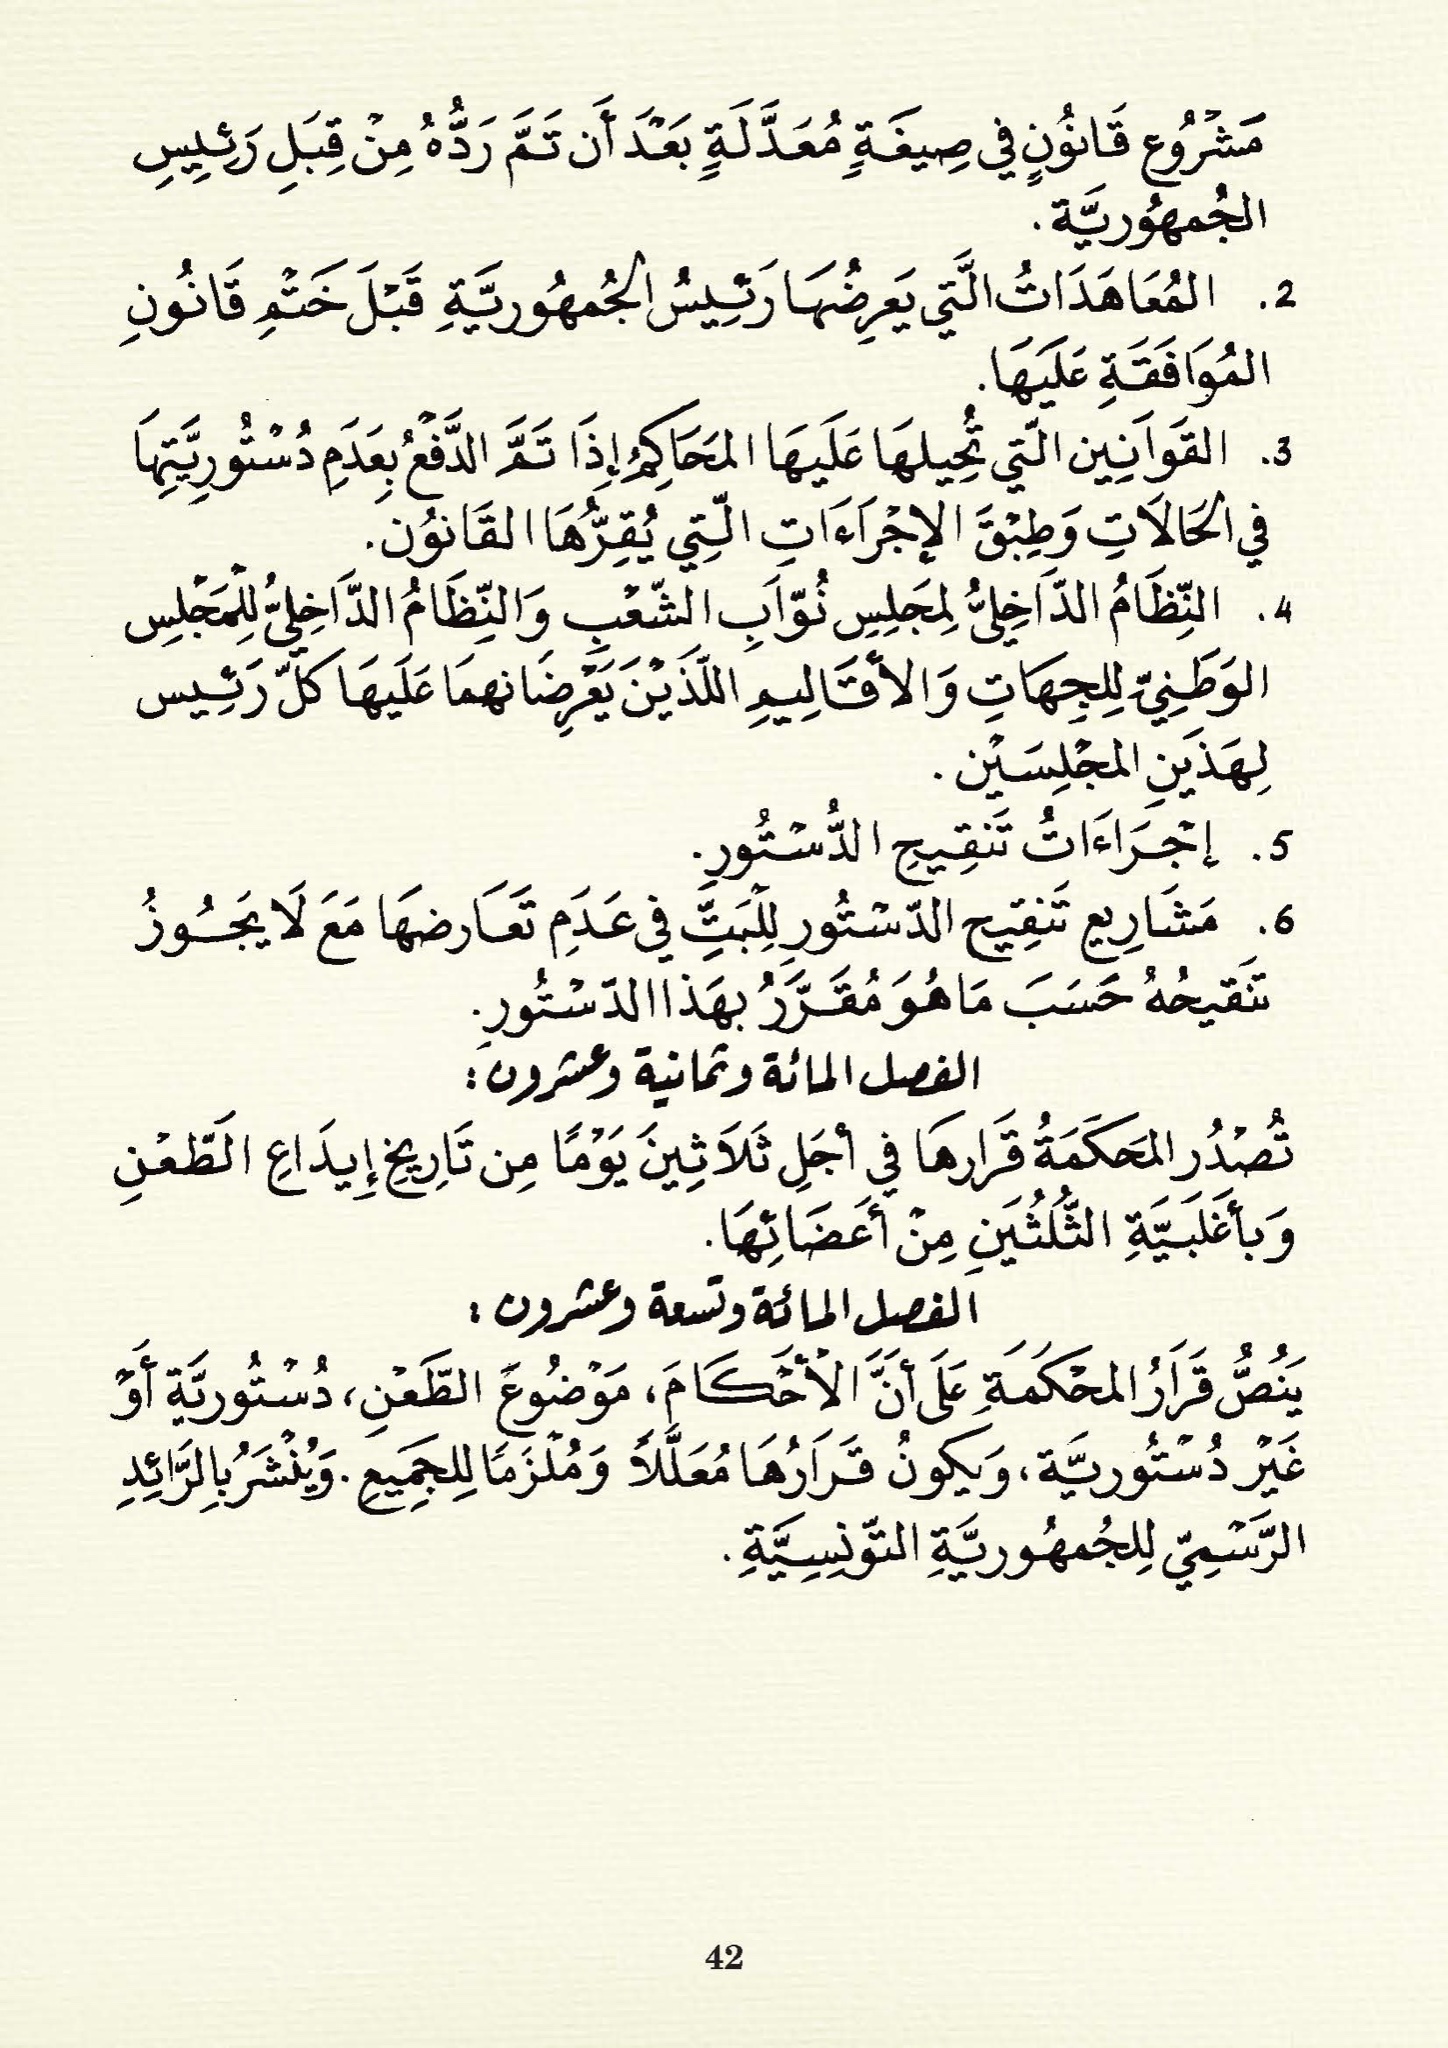 مَشْرُوع قَانُونٍ في صِيغَةٍ مُعَدَّلَةٍ بَعْدَ أَن تَمَّ رَدُّهُ مِنْ قِبَلِ رَئِيسِ
الجُمهُوريَّة .
2. المُعَاهَدَاتُ الَّتي يَعرِضُهَا رَئِيسُ الجُمهُوريَّةِ قَبْلَ خَتْمِ قَانُونِ
المُوَافَقَةِ عَلَيهَا.
3. القَوَانِين الّتي تُحِيلهَا عَلَيهَا المَحَاكِمُ إذَا تَمَّ الدَّفْعُ بِعَدَمِ دُسْتُورِيَّتِهَا
في الحَالاَتِ وَطِبْقَ الإجْرَاءَاتِ الّتِي يُقِرُّهَا القَانُون.
4. النِّظَامُ الدّاَخِليُّ لِمَجلِسِ نُوّابِ الشّعْبِ وَالنِّظَامُ الدّاَخِليُّ لِلْمَجْلِسِ
الوَطَنِيّ لِلجِهَاتِ وَالأقَالِيمِ اللّذَيْنَ يَعْرِضَانهمَا عَلَيهَا كلّ رَئِيس
لِهَذَينِ المجْلِسَيْن .
5. إجْرَاءَاتُ تَنقِيحِ الدُّسْتُورِ.
6. مَشَارِيع تَنقِيح الدّسْتُورِ لِلْبَتِّ في عَدَمِ تَعَارضهَا مَعَ لَا يَجُوزُ
تَنقيحُهُ حَسَبَ مَا هُوَ مُقَرَّرُ بهَذا الدّسْتُورِ.
الفصل المائة وثمانية وعشرون :
تُصْدُر المَحكَمَةُ قَرَارهَا في أجَلِ ثَلاَثِينَ يَوْمًا مِن تَارِيخِ إِيدَاعِ الطَّعْنِ
وَبأغلَبيَّةِ الثُّلُثَينِ مِنْ أعضَائِهَا.
الفصل المائة وتسعة وعشرون :
يَنُصُّ قَرَارُ المحْكَمَةِ عَلَى أنَّ الأحْكَامَ، مَوْضُوعَ الطَّعْنِ، دُسْتُوريَّة أَوْ
غَيْرَ دُسْتُوريَّة، وَيكونُ قَرَارُهَا مُعَلَّلاً وَمُلْزمًا لِلجَمِيعِ . وَيُنْشَرُ بِالرَّائِدِ
الرَّسْمِيّ لِلجُمهُوريَّةِ التّونسِيَّةِ .
42